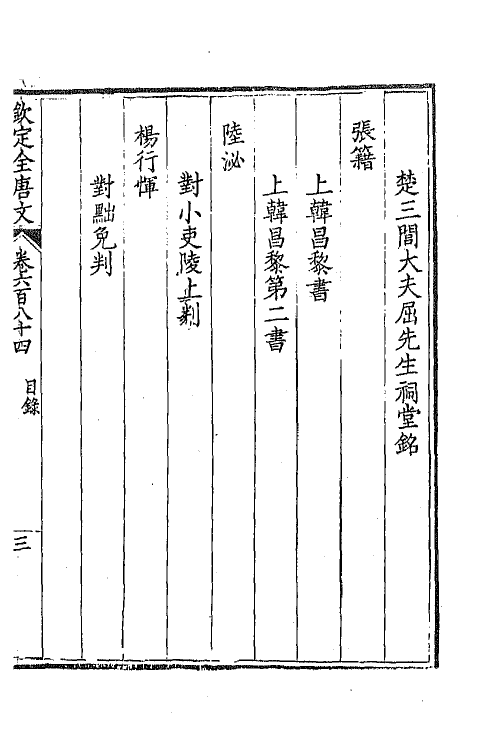 楚三閭大夫屈先生祠堂銘
張籍
上韓昌黎書
上韓昌黎第二書
陸泌
對小吏陵上判
楊行惲
對黜免判
欽定全唐文 卷六百八十四 目錄 三